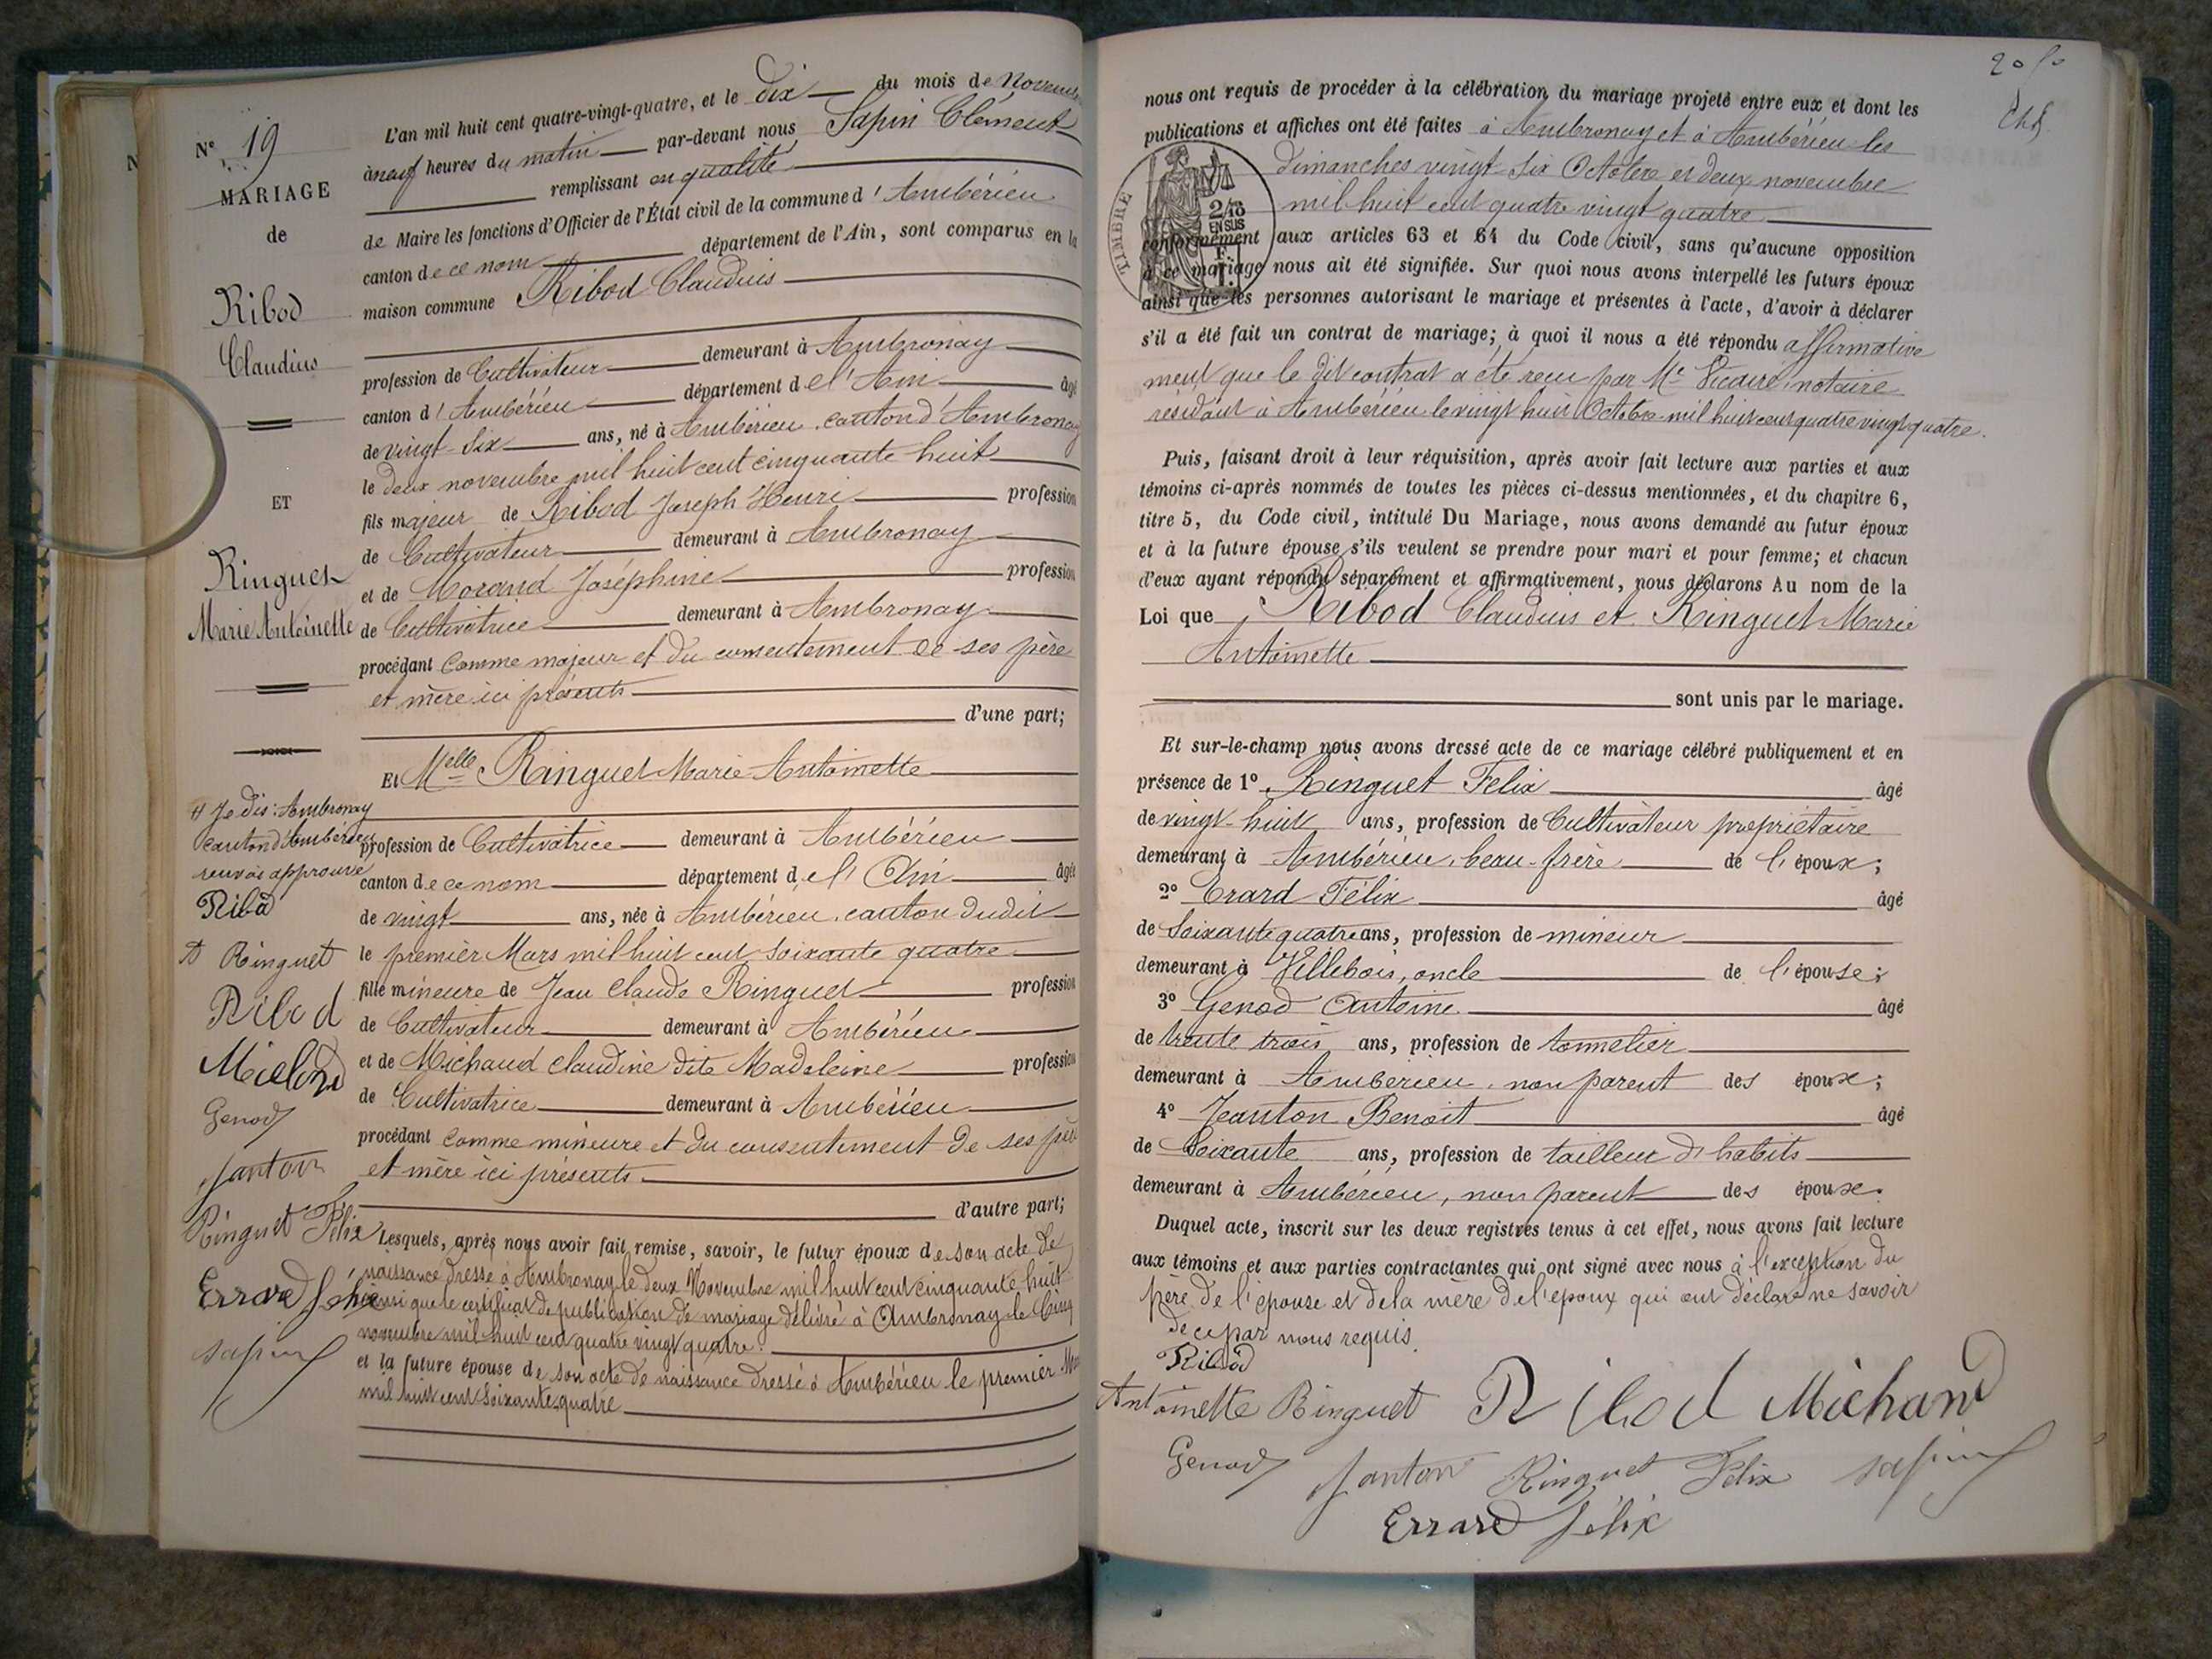 N° 19
MARIAGE
de
Ribod
Claudius
ET
Ringuet
Marie Antoinette
L'an mil huit cent quatre-vingt-quatre, et le dix du mois de Novembre
à neuf heures du matin par-devant nous Sapin Clément
remplissant en qualité
de Maire les fonctions d'Officier de l'État civil de la commune d'Ambérieu
canton de ce nom département de l'Ain, sont comparus en la
maison commune Ribod Claudius
profession de Cultivateur demeurant à Ambronay
canton d'Ambérieu département de l'Ain âgé
de vingt-six ans, né à Ambérieu, canton d'Ambronay
le deux novembre mil huit cent cinquante huit
fils majeur de Ribod Joseph Henri profession
de Cultivateur demeurant à Ambronay
et de Morand Joséphine profession
de Cultivatrice demeurant à Ambronay
procédant comme majeur et du consentement de ses père
et mère ici présents
d'une part;
Et Melle Ringuet Marie Antoinette
profession de Cultivatrice demeurant à Ambérieu
canton de ce nom département de l'Ain âgée
de vingt ans, née à Ambérieu, canton dudit
le premier Mars mil huit cent soixante quatre
fille mineure de Jean Claude Ringuet profession
de Cultivateur demeurant à Ambérieu
et de Michaud Claudine dite Madeleine profession
de Cultivatrice demeurant à Ambérieu
procédant comme mineure et du consentement de ses père
et mère ici présents
d'autre part;
Lesquels, après nous avoir fait remise, savoir, le futur époux de son acte de
naissance dressé à Ambronay le deux Novembre mil huit cent cinquante huit
ainsi que le certificat de publication de mariage délivré à Ambronay le cinq
novembre mil huit cent quatre vingt quatre.
et la future épouse de son acte de naissance dressé à Ambérieu le premier Mars
mil huit cent soixante quatre
Je dis: Ambronay
canton d'Ambérieu
renvoi approuvé
Ribod
A Ringuet
Ribod
Michaud
Genod
Janton
Ringuet Félix
Errard félix
Sapin
nous ont requis de procéder à la célébration du mariage projeté entre eux et dont les
publications et affiches ont été faites à Ambronay et à Ambérieu les
dimanches vingt-six Octobre et deux novembre
mil huit cent quatre vingt quatre
TIMBRE
2/10
EN SUS
conformément aux articles 63 et 64 du Code civil, sans qu'aucune opposition
à ce mariage nous ait été signifiée. Sur quoi nous avons interpellé les futurs époux
ainsi que les personnes autorisant le mariage et présentes à l'acte, d'avoir à déclarer
s'il a été fait un contrat de mariage; à quoi il nous a été répondu affirmative
ment que le dit contrat a été reçu par Me Vicaire, notaire
résidant à Ambérieu le vingt huit Octobre mil huit cent quatre vingt quatre.
Puis, faisant droit à leur réquisition, après avoir fait lecture aux parties et aux
témoins ci-après nommés de toutes les pièces ci-dessus mentionnées, et du chapitre 6,
titre 5, du Code civil, intitulé Du Mariage, nous avons demandé au futur époux
et à la future épouse s'ils veulent se prendre pour mari et pour femme; et chacun
d'eux ayant répondu séparément et affirmativement, nous déclarons Au nom de la
Loi que Ribod Claudius et Ringuet Marie
Antoinette
sont unis par le mariage.
Et sur-le-champ nous avons dressé acte de ce mariage célébré publiquement et en
présence de 1° Ringuet Félix âgé
de vingt-huit ans, profession de Cultivateur propriétaire
demeurant à Ambérieu, beau-frère de l'époux;
2° Erard Félix âgé
de soixante quatre ans, profession de mineur
demeurant à Villebois, oncle de l'épouse;
3° Genod Antoine âgé
de trente trois ans, profession de tonnelier
demeurant à Amberieu, non parent des époux;
4° Jeanton Benoit âgé
de soixante ans, profession de tailleur d'habits
demeurant à Ambérieu, non parent des époux.
Duquel acte, inscrit sur les deux registres tenus à cet effet, nous avons fait lecture
aux témoins et aux parties contractantes qui ont signé avec nous à l'exception du
père de l'épouse et de la mère de l'époux qui ont déclaré ne savoir
de ce par nous requis.
Ribod
Antoinette Ringuet Ribod Michaud
Genod Janton Ringuet Félix Sapin
Errard félix